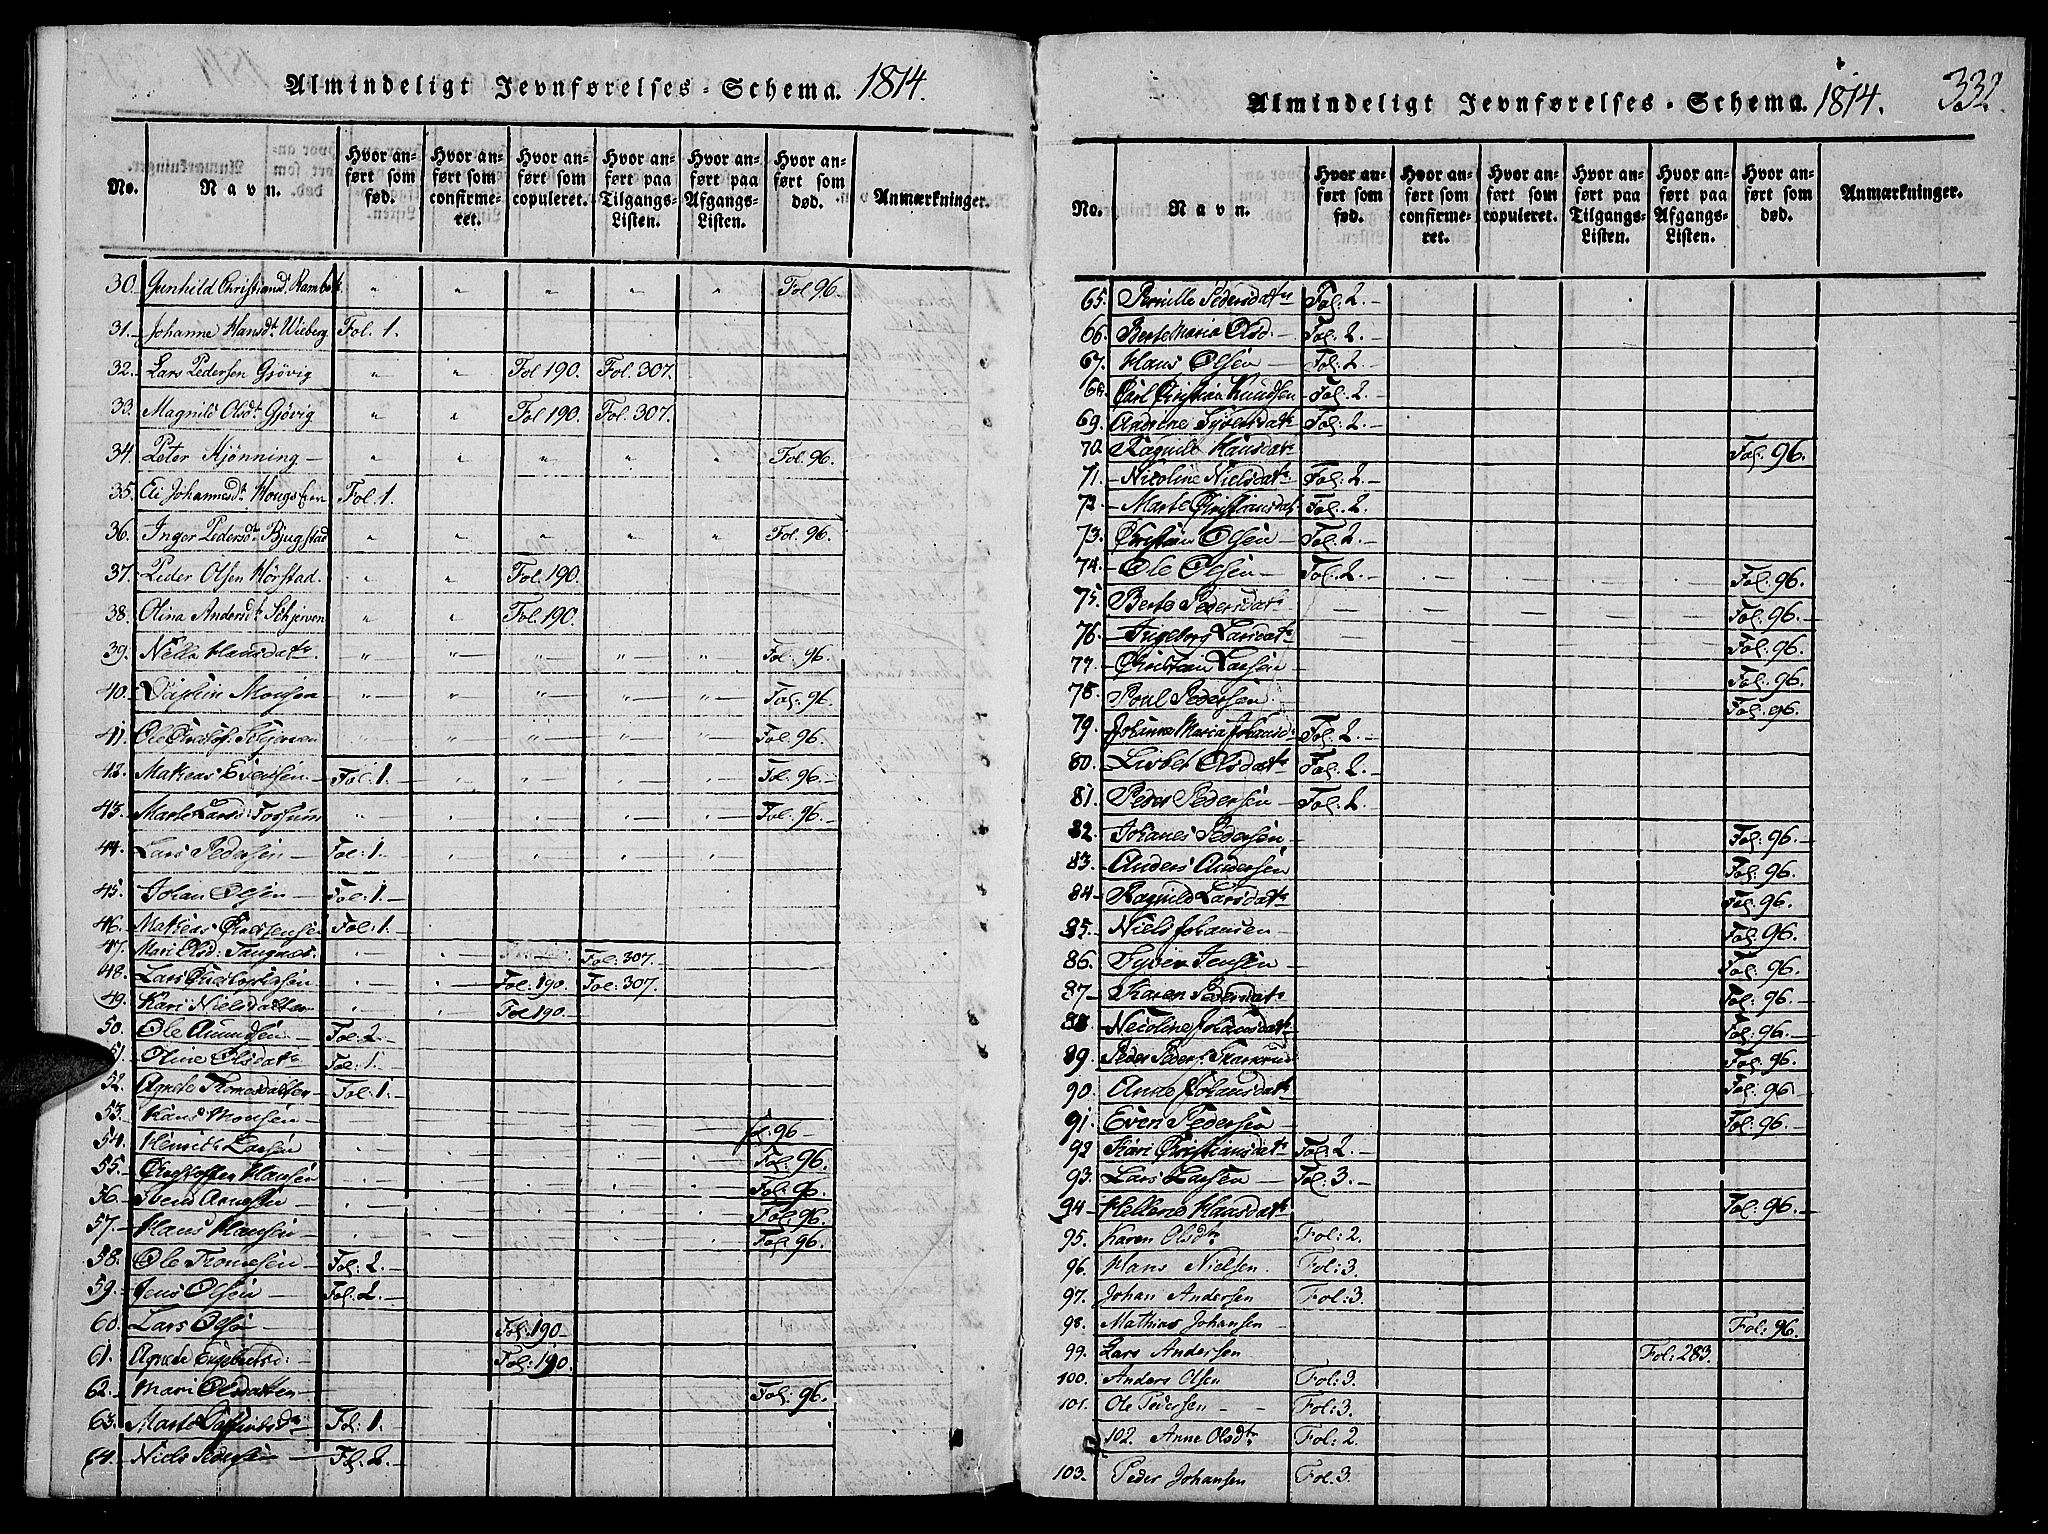 Almindeligt Jevnførelses-Schema. 1814.
No. Navn. Hvor anført som fød. Hvor anført som confirmeret. Hvor anført som copuleret. Hvor anført paa Tilgangs-Listen. Hvor anført paa Afgangs-Listen. Hvor anført som død. Anmærkninger.
30. Gunhild Christiansd. " " " " " Fol 96.
31. Johanne Hansdt. Wieberg Fol. 1.
32. Lars Pedersen Gjövig " " Fol 190. Fol. 307.
33. Magnild Olsdt. Gjövig " " Fol 190. Fol. 307.
34. Peter Hjönning " " " " " Fol. 96.
35. Eli Johannesdt. Fol. 1.
36. Inger Pedersdt. Bjugstad " " " " " Fol. 96.
37. Peder Olsen Hörstad. " " Fol. 190.
38. Olina Andersdt. Schjerven " " Fol. 190.
39. Nella Hansdatr. " " " " " Fol: 96.
40. " " " " " Fol: 96.
41. Ole " " " " " Fol. 96.
42. Mathias Fol: 1. " " " " Fol: 96.
43. Marte Larsd: Fossum " " " " " Fol: 96.
44. Lars Pedersen Fol: 1.
45. Johan Olsen Fol: 1.
46. Mathias Fol: 1.
47. Mari Olsd: Fol: 307.
48. Lars Fol: 190. Fol: 307.
49. Kari Nielsdatter Fol 190.
50. Ole Amundsen Fol: 2.
51. Oline Olsdatr Fol: 1.
52. Agnete Tomesdatter Fol: 1.
53. Hans Monsen fol. 96
54. Henrik Larsen Fol: 96.
55. Christoffer Hansen Fol: 96
56. Svend Arnesen Fol. 96.
57. Hans Hansen Fol 96.
58. Ole Tomesen Fol: 2.
59. Jens Olsen Fol: 2.
60. Lars Olsen Fol: 190
61. Agnete Engebretsd: Fol: 190.
62. Mari Olsdatter Fol: 96.
63. Marte Fol: 1.
64. Niels Pedersen Fol: 2.
Almindeligt Jevnførelses-Schema. 1814. 332.
No. Navn. Hvor anført som fød. Hvor anført som confirmeret. Hvor anført som copuleret. Hvor anført paa Tilgangs-Listen. Hvor anført paa Afgangs-Listen. Hvor anført som død. Anmærkninger.
65. Pernille Pedersdatr Fol: 2.
66. Berte Maria Olsd. Fol: 2.
67. Hans Olsen Fol: 2.
68. Carl Christian Knudsen Fol: 2.
69. Andrine Syversdatr Fol: 2.
70. Ragnild Hansdatr Fol: 96.
71. Nicoline Nielsdatr. Fol: 2.
72. Marte Christiansdatr Fol: 2.
73. Christian Olsen Fol: 2.
74. Ole Olsen Fol: 2. Fol: 96.
75. Berte Pedersdatr Fol: 96.
76. Ingeborg Larsdatr Fol: 96.
77. Christian Larsen Fol: 96.
78. Poul Pedersen Fol: 96.
79. Johanne Maria Johansd: Fol: 2.
80. Lisbet Olsdatr Fol: 2.
81. Peder Pedersen Fol: 2.
82. Johanes Pedersen Fol: 96.
83. Anders Andersen Fol: 96.
84. Ragnild Larsdatr Fol: 96.
85. Niels Johansen Fol: 96.
86. Syver Jensen Fol: 96.
87. Karen Pedersdatr Fol: 96.
88. Nicoline Johansdatr Fol: 96.
89. Peder Peders: Fol: 96.
90. Anne Johansdatr Fol: 96.
91. Even Pedersen Fol: 96.
92. Kari Christiansdatr Fol: 2.
93. Lars Larsen Fol: 3.
94. Hellene Hansdatr Fol: 96.
95. Karen Olsdtr Fol: 2.
96. Hans Nielsen. Fol: 3.
97. Johan Andersen Fol: 3.
98. Mathias Johansen Fol: 96.
99. Lars Andersen Fol: 283.
100. Anders Olsen Fol: 3.
101. Ole Pedersen Fol: 3.
102. Anne Olsdtr Fol: 2.
103. Peder Johansen Fol: 3.